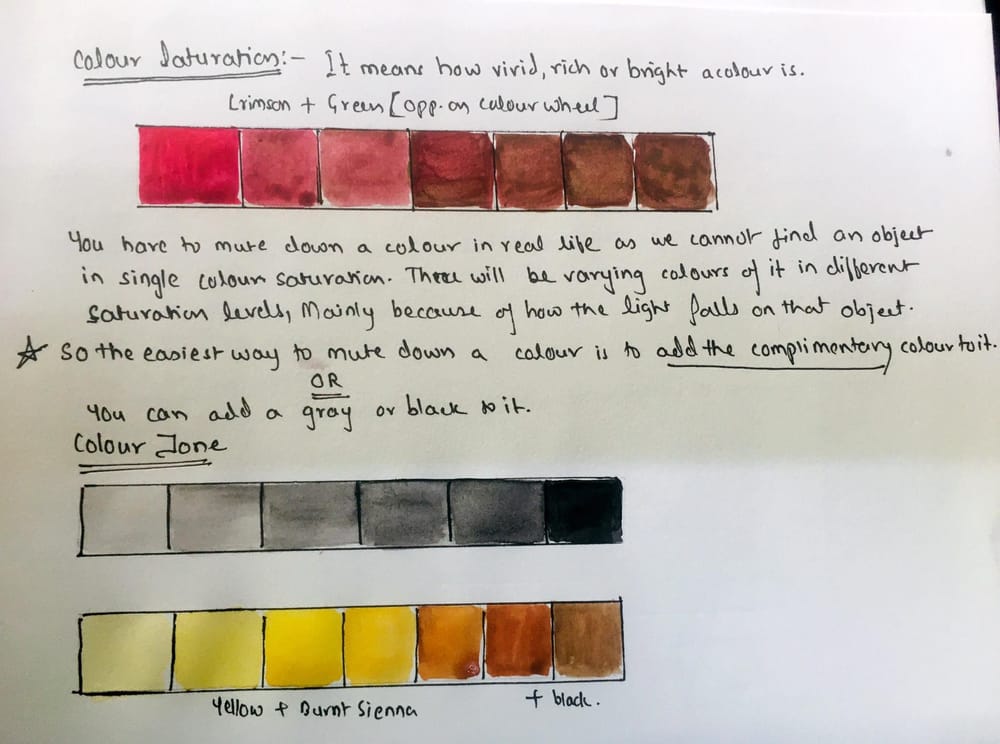 Colour Saturation:- It means how vivid, rich or bright a colour is.
Crimson + Green [opp. on colour wheel]
You have to mute down a colour in real life as we cannot find an object
in single colour saturation. There will be varying colours of it in different
saturation levels, Mainly because of how the light falls on that object.
☆ So the easiest way to mute down a colour is to add the complimentary colour to it.
OR
You can add a gray or black to it.
Colour Tone
Yellow + Burnt Sienna + black.